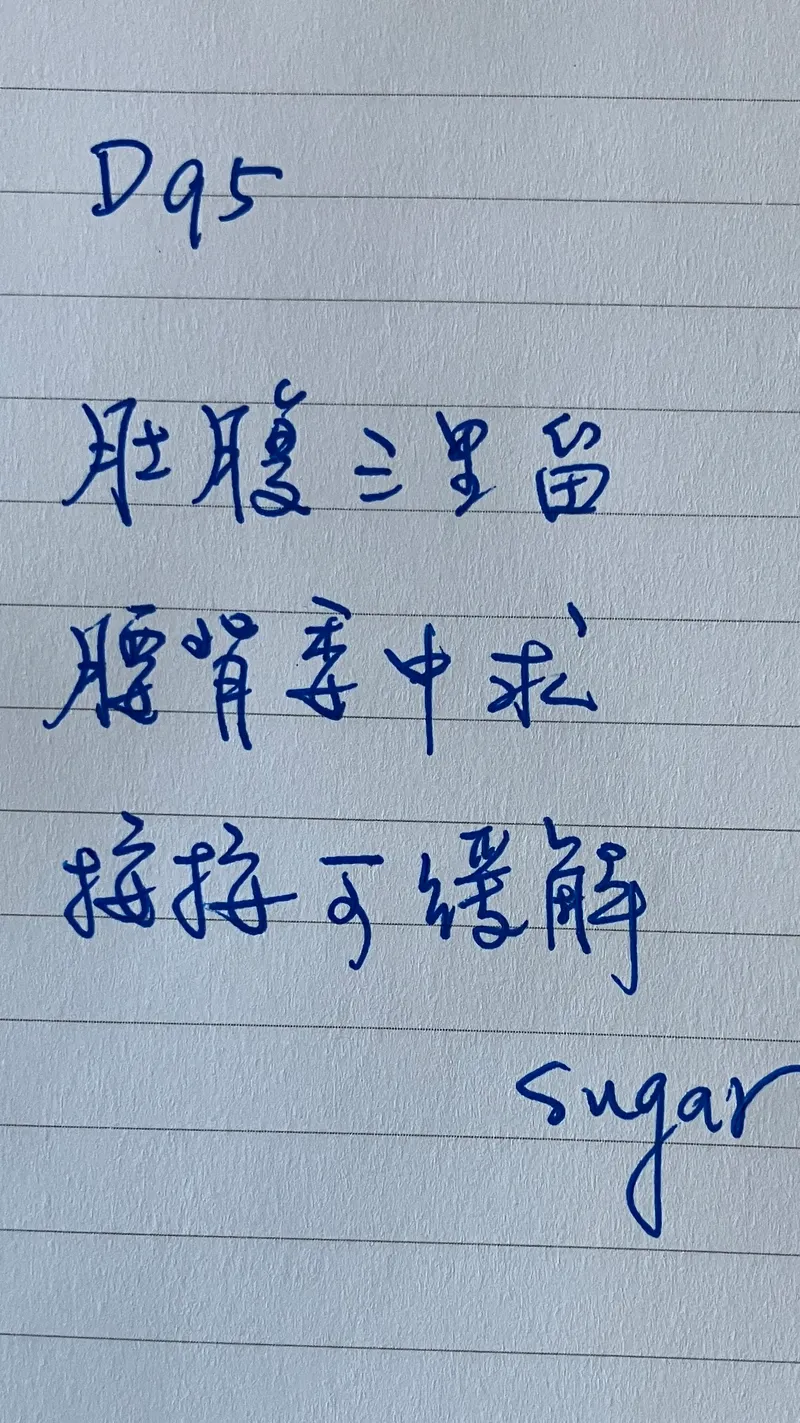 D95
肚腹三里留
腰背委中求
按按可缓解
sugar